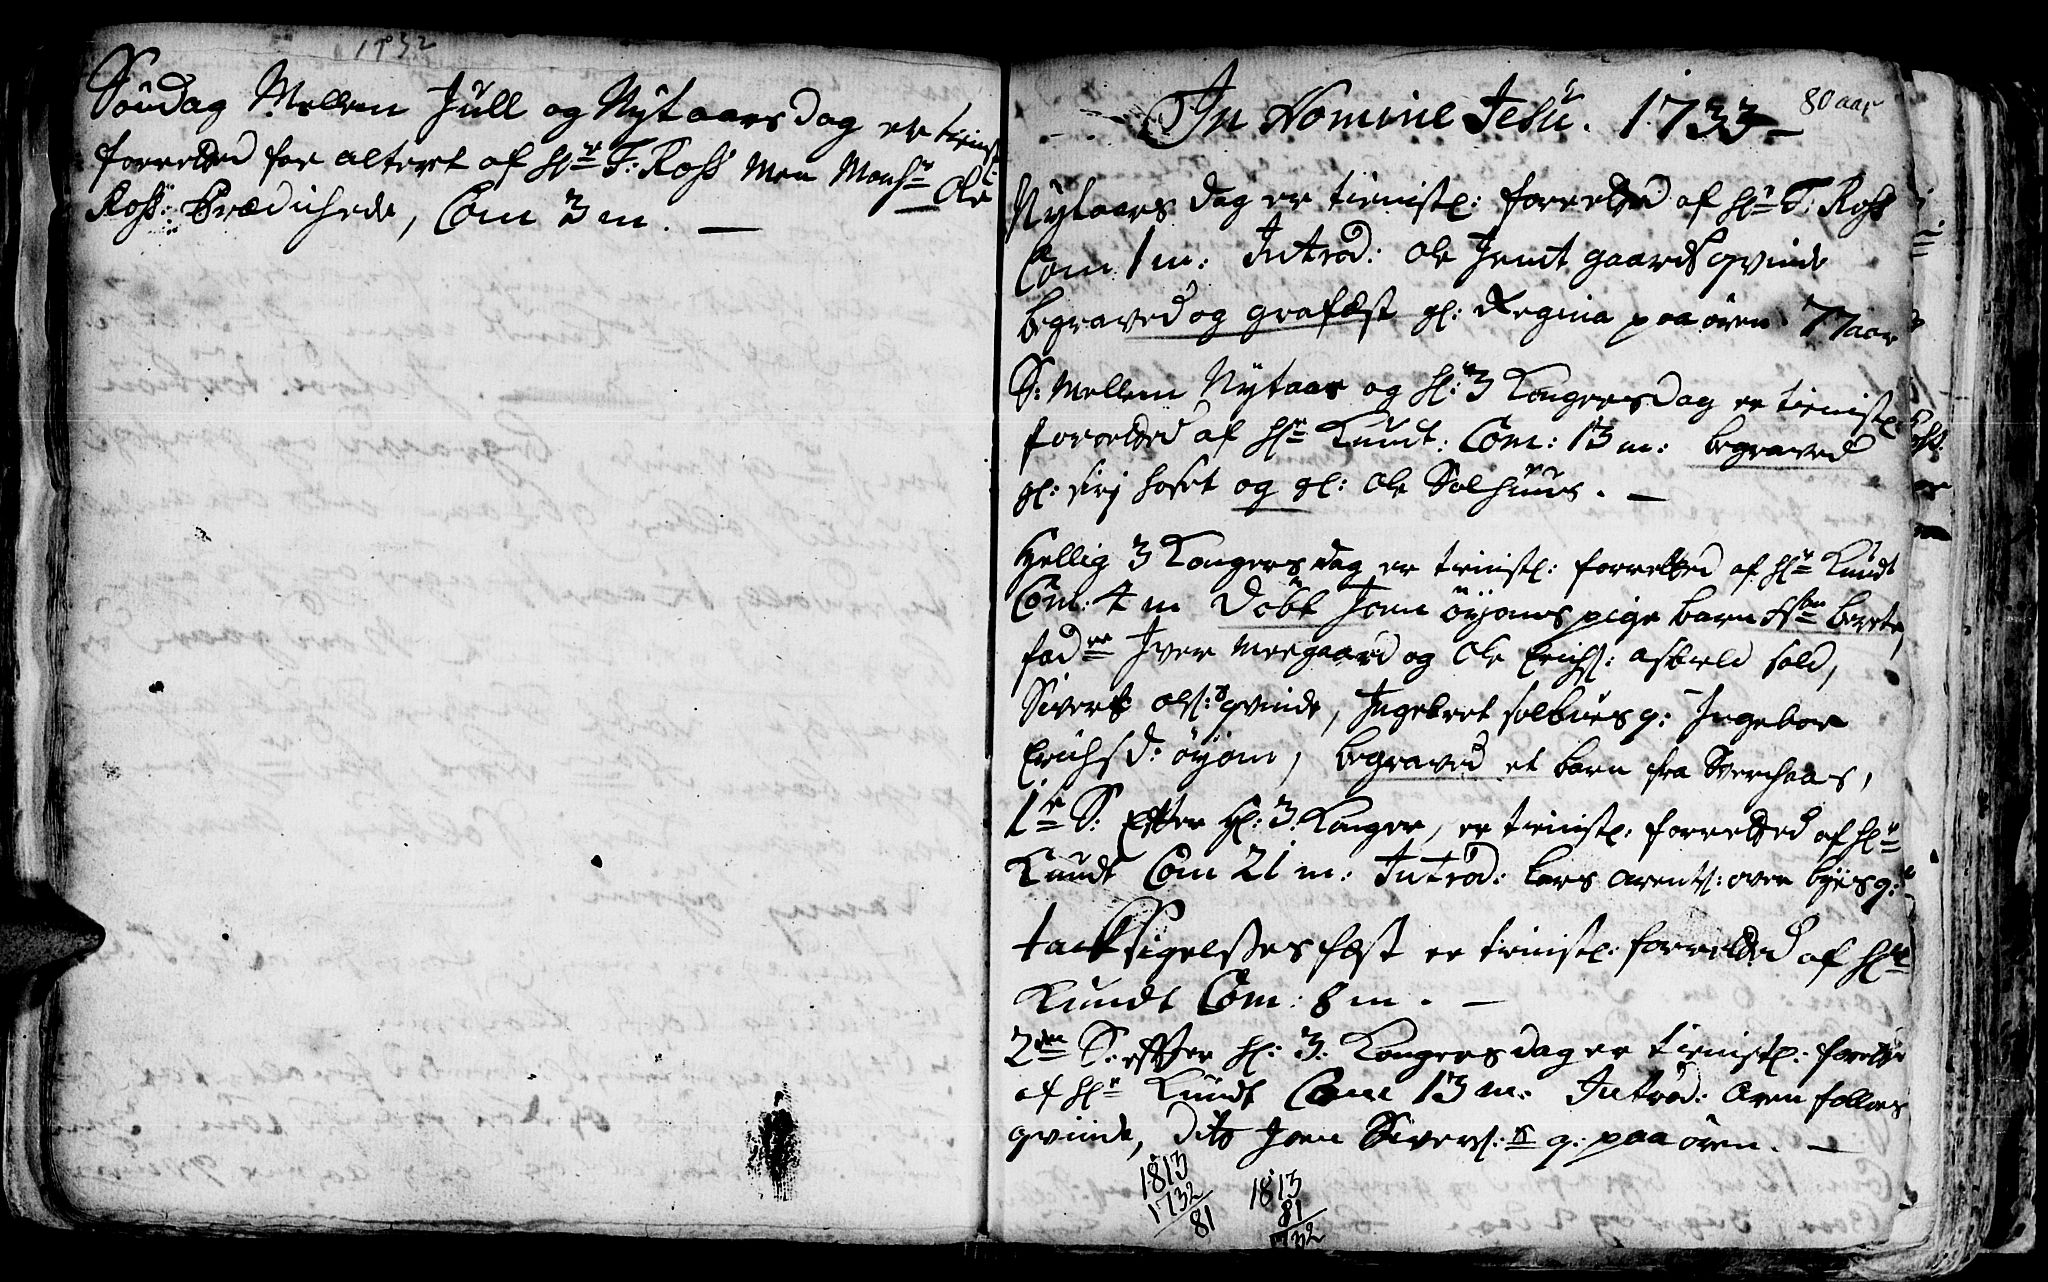 1732
Söndag Mellem Jull og Nÿtaarsdag er tienist:
forretted for alteret af Hr: T: Ross men Monsr Ole
Ross: Prædichede, Com 3 m. —
In Nomine Jesu. 1733 —
80 aar
Nÿtaars dag er tienist: forretted af Hr T: Ross
Com 1 m: Introd: Ole Jemt gaards qvinde
begraved og grafæst gl: Regina paa ören 77 aar
S: Mellem Nÿtaar og Hl: 3 Kongersdag er tienist
forretted af Hr Kundt: Com: 13 m: begraved
gl: sirj hoset og gl: Ole Solhuus. —
Hellig 3 Kongers dag er tienist: forretted af Hr Kundt
Com: 4 m Döbt Joen öÿoms pige barn Berete,
fadre Iver Moegaard og Ole Erichs:
Sivert ols: qvinde, Ingebret solbues q: Ingebor
Erichsd: öÿom, begraved et barn fra
1e S: Effter Hl: 3 Konger, er tienist: forretted af Hr
Kundt Com 21 m: Introd: Lars Arents: over bÿes q:
tacksigelsses fæst er tienist: forretted af Hr
Kundt Com: 8 m. —
2den S: effter Hl: 3: Kongersdag er tienist: forrette
af Hr Kundt Com 13 m: Introd: Aren follos
qvinde, dito Joen Sivers: q: paa ören. —
1813
1732
81
1813
81
1732